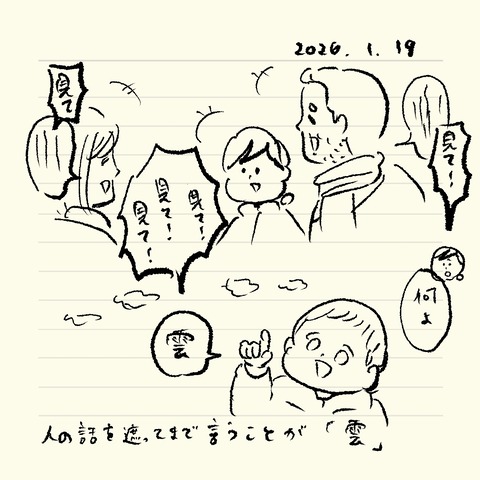 2026. 1. 19
見て
見て!
見て!
見て!
見て!
見て〜!
何よ
雲
人の話を遮ってまで言うことが「雲」